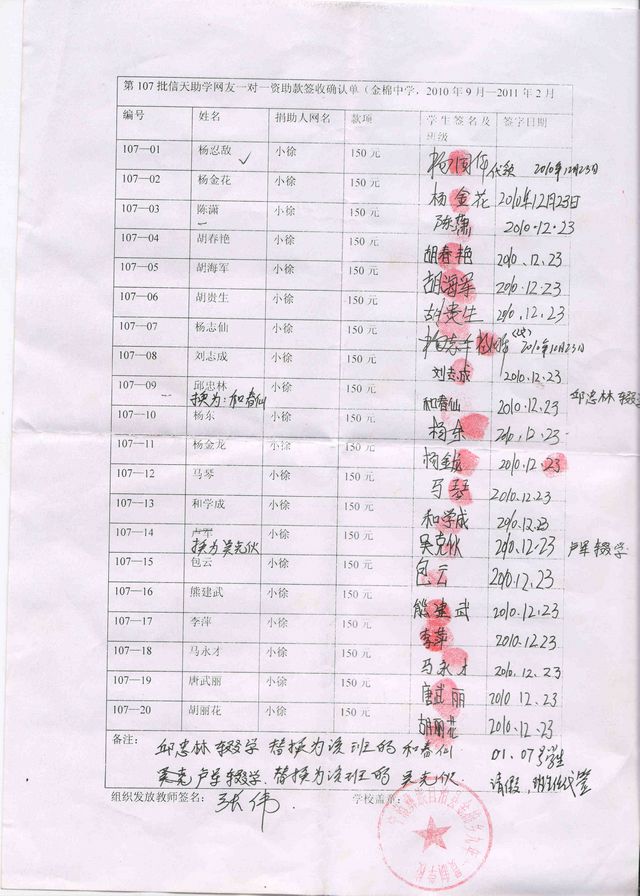 第 107 批信天助学网友一对一资助款签收确认单（金棉中学，2010 年 9 月—2011 年 2 月
编号 姓名 捐助人网名 款项 学生签名及班级 签字日期
107—01 杨忍敌 小徐 150 元 代领 2010年12月23日
107—02 杨金花 小徐 150 元 杨金花 2010年12月23日
107—03 陈潇 小徐 150 元 陈潇 2010.12.23
107—04 胡春艳 小徐 150 元 胡春艳 2010.12.23
107—05 胡海军 小徐 150 元 胡海军 2010.12.23
107—06 胡贵生 小徐 150 元 胡贵生 2010.12.23
107—07 杨志仙 小徐 150 元
107—08 刘志成 小徐 150 元 刘志成 2010.12.23
107—09 邱忠林 小徐 150 元 和春仙 2010.12.23 邱忠林 辍学
换为:和春仙
107—10 杨东 小徐 150 元 2010.12.23
107—11 杨金龙 小徐 150 元 杨金龙 2010.12.23
107—12 马琴 小徐 150 元 马琴 2010.12.23
107—13 和学成 小徐 150 元 和学成 2010.12.23
107—14 卢军 小徐 150 元 吴克伙 2010.12.23 卢军 辍学
换为吴克伙
107—15 包云 小徐 150 元 包云 2010.12.23
107—16 熊建武 小徐 150 元 熊建武 2010.12.23
107—17 李萍 小徐 150 元 李萍 2010.12.23
107—18 马永才 小徐 150 元 马永才 2010.12.23
107—19 唐武丽 小徐 150 元 唐武丽 2010 12.23
107—20 胡丽花 小徐 150 元 胡丽花 2010.12.23
备注： 邱忠林 辍学 替换为该班的 和春仙 01.07号学生
卢军 辍学 替换为该班的 吴克伙 请假，班主任代签
组织发放教师签名：张伟 学校盖章：